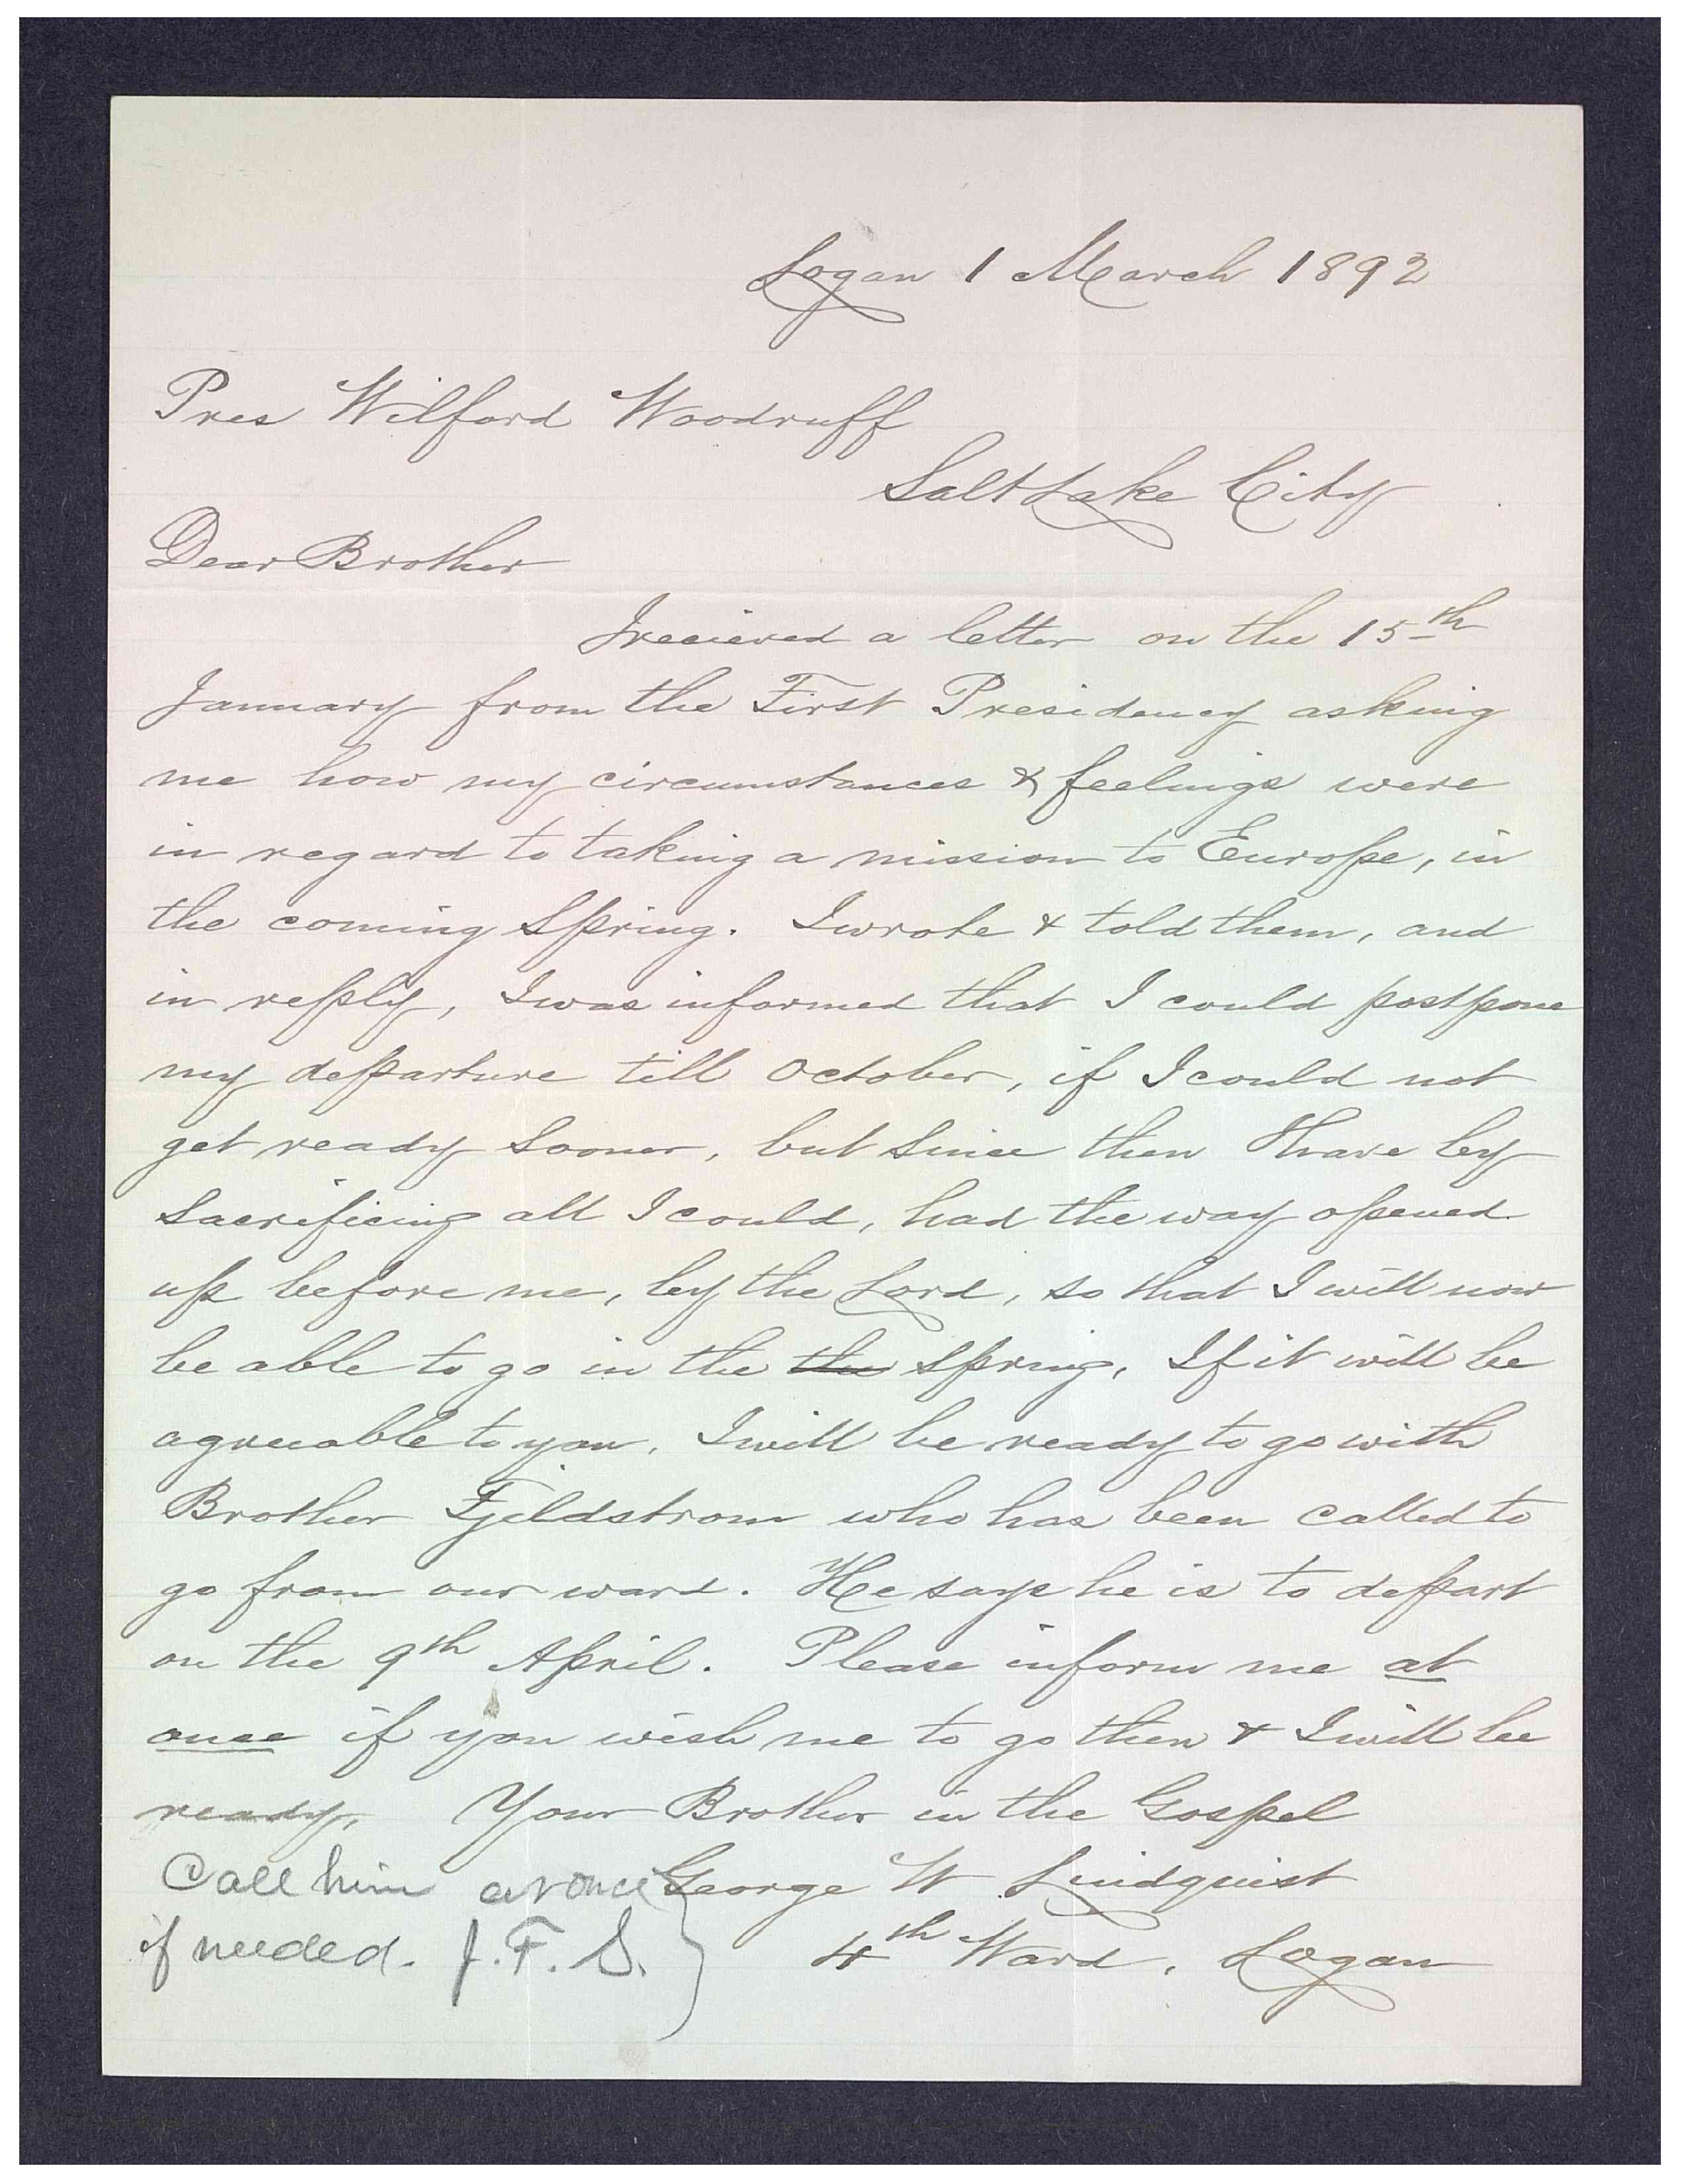 Logan 1 March 1892
Pres Wilford Woodruff
Salt Lake City
Dear Brother
I recieved a letter on the 15th
January from the First Presidency asking
me how my circumstances & feelings were
in regard to taking a mission to Europe, in
the coming Spring. I wrote & told them, and
in reply, I was informed that I could postpone
my departure till October, if I could not
get ready sooner, but since then I have by
sacrificing all I could, had the way opened
up before me, by the Lord, so that I will now
be able to go in the the spring, If it will be
agreeable to you, I will be ready to go with
Brother Fjeldstrom who has been called to
go from our ward. He says he is to depart
on the 9th April. Please inform me at
once if you wish me to go then & I will be
ready, Your Brother in the Gospel
George W Lindquist
4th Ward, Logan
Call him at once
if needed. J. F. S.